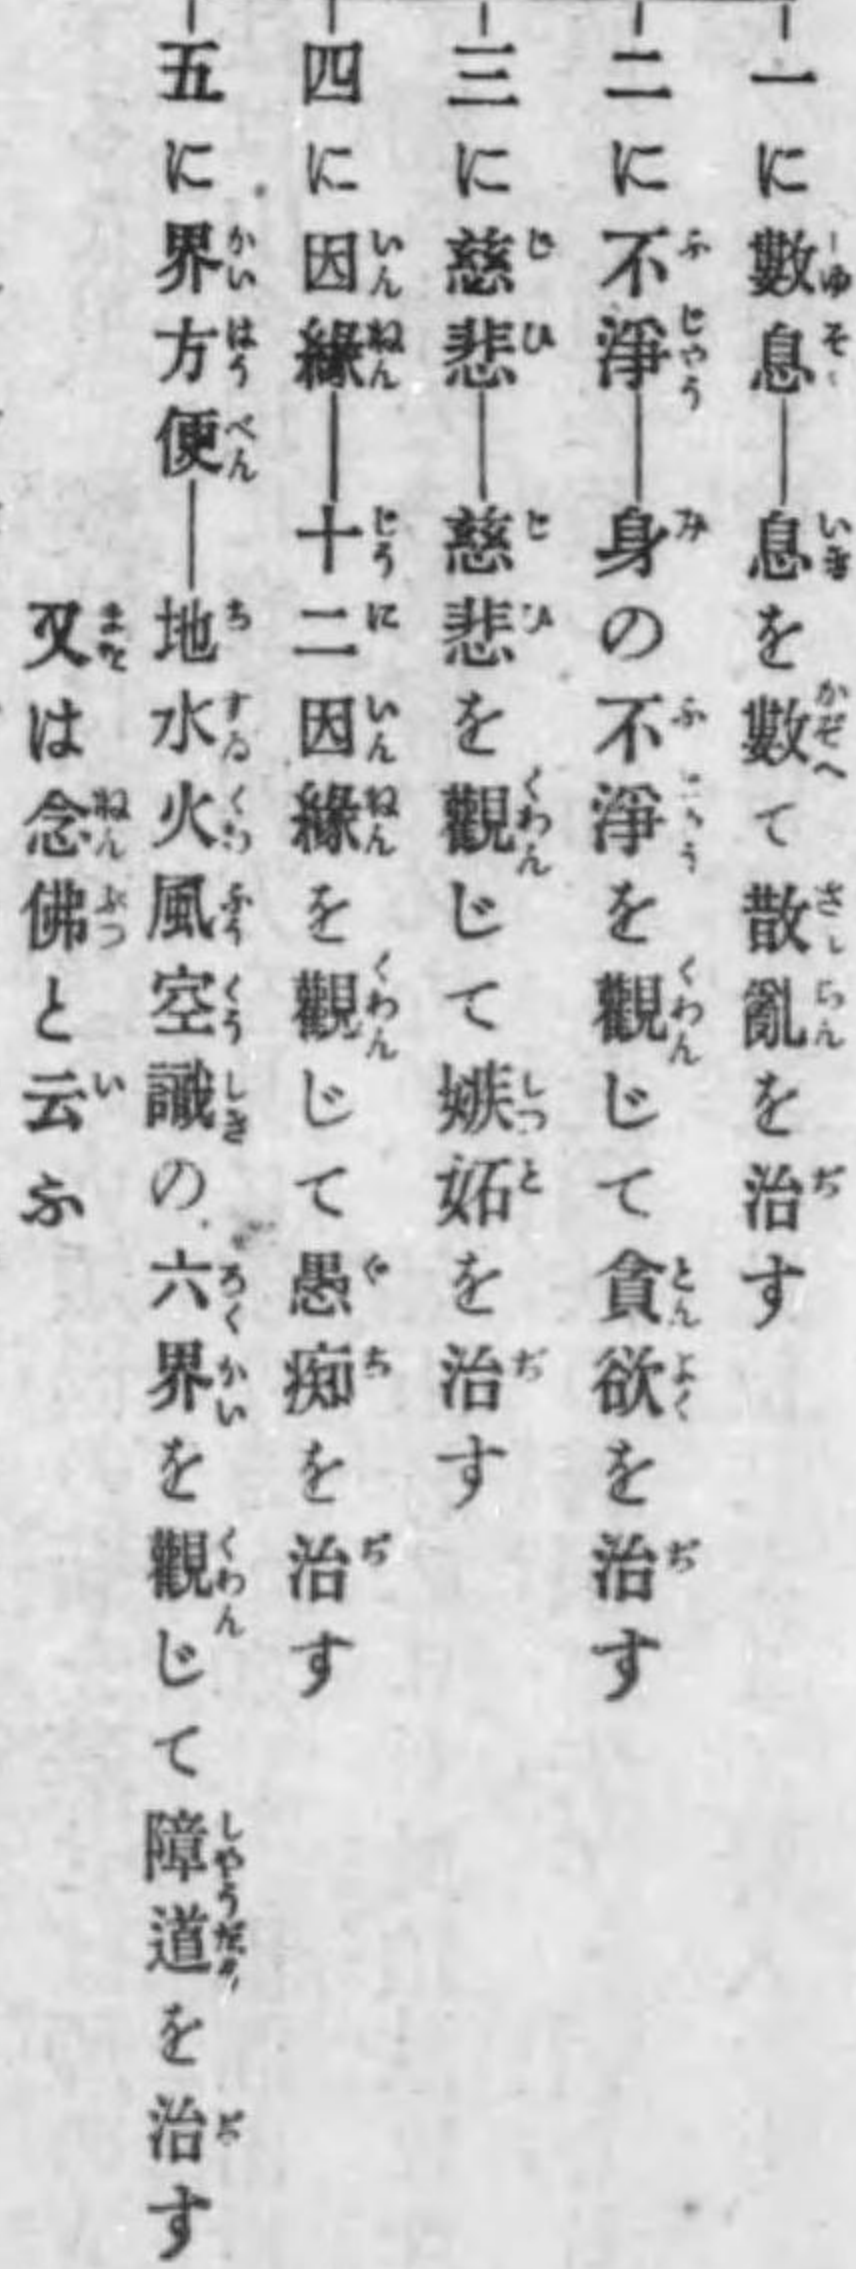 一に數息――息を數て散亂を治す
二に不淨――身の不淨を觀じて貪欲を治す
三に慈悲――慈悲を觀じて嫉妬を治す
四に因緣――十二因緣を觀じて愚痴を治す
五に界方便――地水火風空識の六界を觀じて障道を治す
又は念佛と云ふ